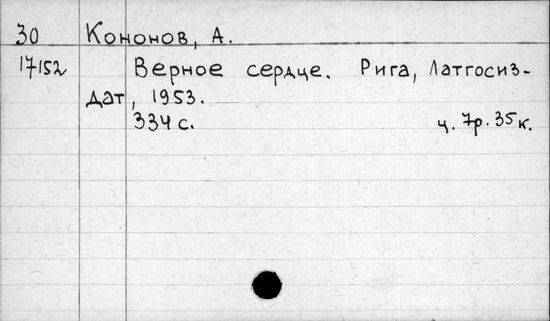 30 Кононов, А.
17152 Верное сердце. Рига, Латгосиз-
дат, 1953.
334 с. ц. 7р. 35к.